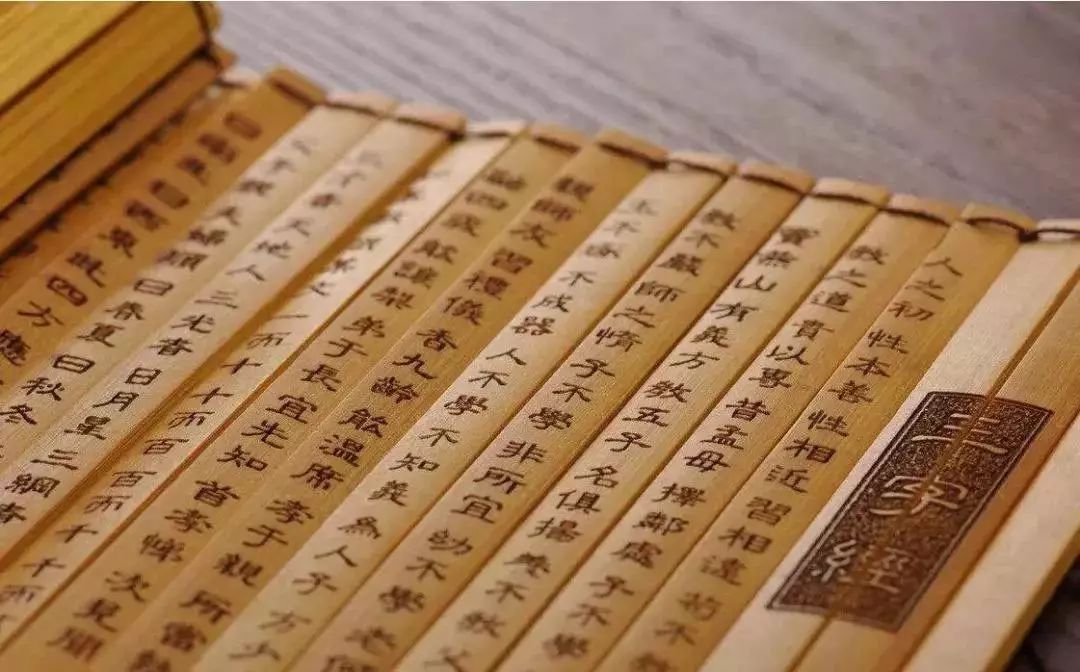 三字經
人之初性本善性相近習相遠苟不
教之道貴以專昔孟母擇鄰處子不學
竇燕山有義方教五子名俱揚養不教父
教不嚴師之惰子不學非所宜幼不學老何
玉不琢不成器人不學不知義為人子方少
親師友習禮儀香九齡能溫席孝于親所當
融四歲能讓梨弟于長宜先知首孝悌次見聞
某文一而十十而百百而千千而
三才者天地人三光者日月星三綱者
子親夫婦順曰春夏曰秋冬
東此四方應